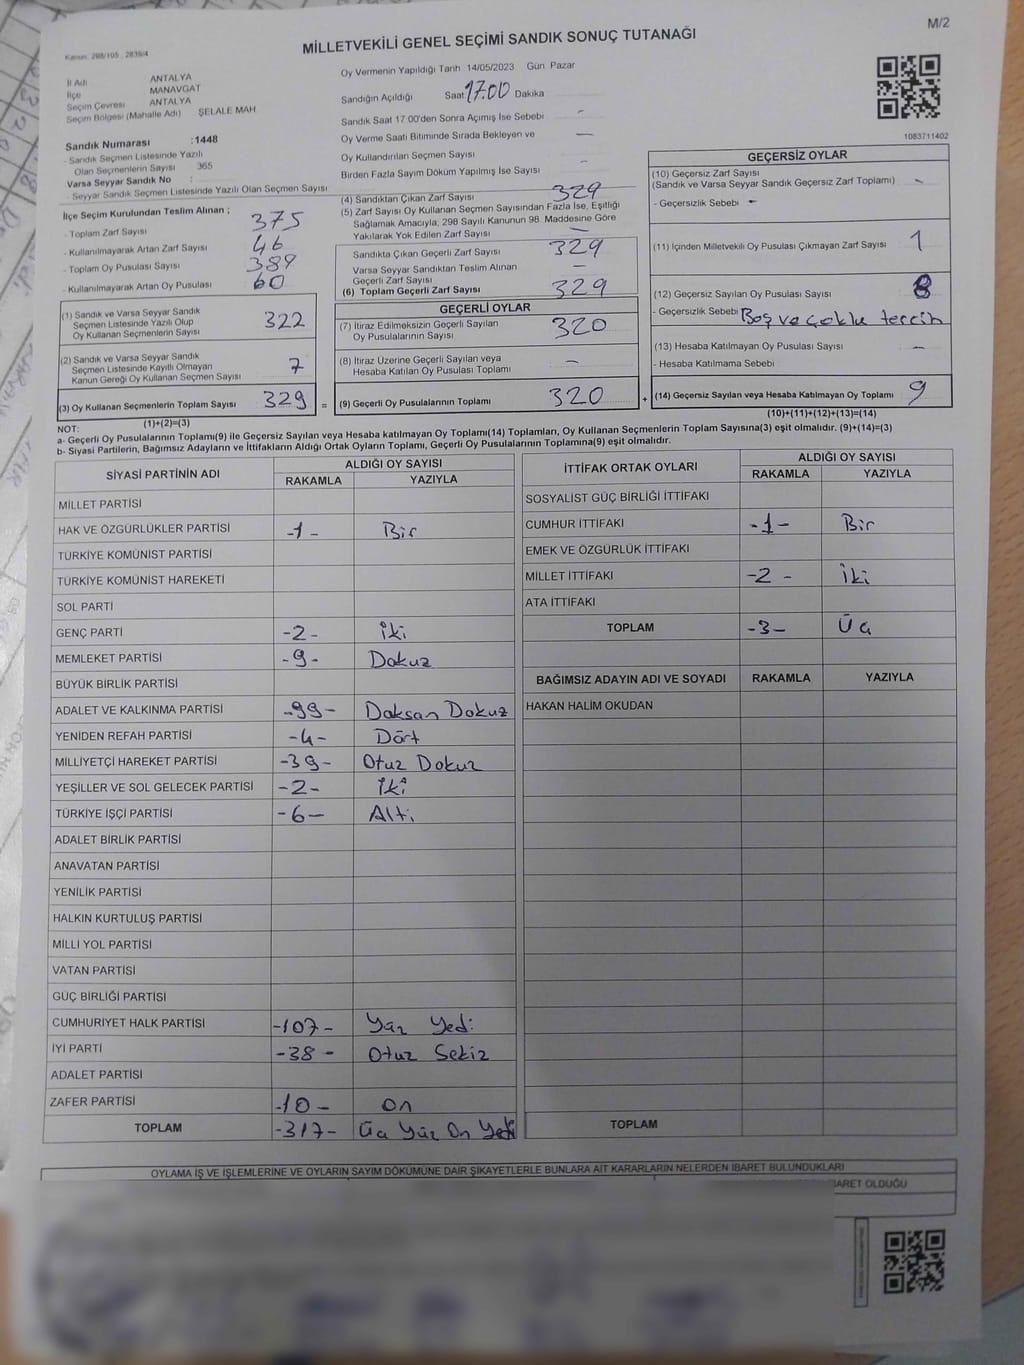 M/2
Kanun: 298/105 , 2839/4
MİLLETVEKİLİ GENEL SEÇİMİ SANDIK SONUÇ TUTANAĞI
İl Adı ANTALYA
İlçe MANAVGAT
Seçim Çevresi ANTALYA
Seçim Bölgesi (Mahalle Adı) ŞELALE MAH
Sandık Numarası :1448
- Sandık Seçmen Listesinde Yazılı
Olan Seçmenlerin Sayısı 365
Varsa Seyyar Sandık No :
- Seyyar Sandık Seçmen Listesinde Yazılı Olan Seçmen Sayısı
İlçe Seçim Kurulundan Teslim Alınan ;
- Toplam Zarf Sayısı 375
- Kullanılmayarak Artan Zarf Sayısı 46
- Toplam Oy Pusulası Sayısı 389
- Kullanılmayarak Artan Oy Pusulası 60
(1) Sandık ve Varsa Seyyar Sandık
Seçmen Listesinde Yazılı Olup
Oy Kullanan Seçmenlerin Sayısı 322
(2) Sandık ve Varsa Seyyar Sandık
Seçmen Listesinde Kayıtlı Olmayan
Kanun Gereği Oy Kullanan Seçmen Sayısı 7
(3) Oy Kullanan Seçmenlerin Toplam Sayısı 329 =
(1)+(2)=(3)
Oy Vermenin Yapıldığı Tarih 14/05/2023 Gün Pazar
Sandığın Açıldığı Saat 17.00 Dakika
Sandık Saat 17:00'den Sonra Açımış İse Sebebi -
Oy Verme Saati Bitiminde Sırada Bekleyen ve —
Oy Kullandırılan Seçmen Sayısı
Birden Fazla Sayım Döküm Yapılmış İse Sayısı -
(4) Sandıktan Çıkan Zarf Sayısı 329
(5) Zarf Sayısı Oy Kullanan Seçmen Sayısından Fazla İse, Eşitliği
Sağlamak Amacıyla, 298 Sayılı Kanunun 98. Maddesine Göre
Yakılarak Yok Edilen Zarf Sayısı —
Sandıkta Çıkan Geçerli Zarf Sayısı 329
Varsa Seyyar Sandıktan Teslim Alınan
Geçerli Zarf Sayısı —
(6) Toplam Geçerli Zarf Sayısı 329
GEÇERLİ OYLAR
(7) İtiraz Edilmeksizin Geçerli Sayılan
Oy Pusulalarının Sayısı 320
(8) İtiraz Üzerine Geçerli Sayılan veya
Hesaba Katılan Oy Pusulası Toplamı —
(9) Geçerli Oy Pusulalarının Toplamı 320 +
1083711402
GEÇERSİZ OYLAR
(10) Geçersiz Zarf Sayısı
(Sandık ve Varsa Seyyar Sandık Geçersiz Zarf Toplamı) -
- Geçersizlik Sebebi -
(11) İçinden Milletvekili Oy Pusulası Çıkmayan Zarf Sayısı 1
(12) Geçersiz Sayılan Oy Pusulası Sayısı 8
- Geçersizlik Sebebi Boş ve çoklu tercih
(13) Hesaba Katılmayan Oy Pusulası Sayısı —
- Hesaba Katılmama Sebebi
(14) Geçersiz Sayılan veya Hesaba Katılmayan Oy Toplamı 9
(10)+(11)+(12)+(13)=(14)
NOT:
a- Geçerli Oy Pusulalarının Toplamı(9) ile Geçersiz Sayılan veya Hesaba katılmayan Oy Toplamı(14) Toplamları, Oy Kullanan Seçmenlerin Toplam Sayısına(3) eşit olmalıdır. (9)+(14)=(3)
b- Siyasi Partilerin, Bağımsız Adayların ve İttifakların Aldığı Ortak Oyların Toplamı, Geçerli Oy Pusulalarının Toplamına(9) eşit olmalıdır.
SİYASİ PARTİNİN ADI ALDIĞI OY SAYISI
RAKAMLA YAZIYLA
MİLLET PARTİSİ
HAK VE ÖZGÜRLÜKLER PARTİSİ -1- Bir
TÜRKİYE KOMÜNİST PARTİSİ
TÜRKİYE KOMÜNİST HAREKETİ
SOL PARTİ
GENÇ PARTİ -2- İki
MEMLEKET PARTİSİ -9- Dokuz
BÜYÜK BİRLİK PARTİSİ
ADALET VE KALKINMA PARTİSİ -99- Doksan Dokuz
YENİDEN REFAH PARTİSİ -4- Dört
MİLLİYETÇİ HAREKET PARTİSİ -39- Otuz Dokuz
YEŞİLLER VE SOL GELECEK PARTİSİ -2- İki
TÜRKİYE İŞÇİ PARTİSİ -6- Altı
ADALET BİRLİK PARTİSİ
ANAVATAN PARTİSİ
YENİLİK PARTİSİ
HALKIN KURTULUŞ PARTİSİ
MİLLİ YOL PARTİSİ
VATAN PARTİSİ
GÜÇ BİRLİĞİ PARTİSİ
CUMHURİYET HALK PARTİSİ -107- Yüz Yedi
İYİ PARTİ -38- Otuz Sekiz
ADALET PARTİSİ
ZAFER PARTİSİ -10- On
TOPLAM -317- Üç Yüz On Yedi
İTTİFAK ORTAK OYLARI ALDIĞI OY SAYISI
RAKAMLA YAZIYLA
SOSYALİST GÜÇ BİRLİĞİ İTTİFAKI
CUMHUR İTTİFAKI -1- Bir
EMEK VE ÖZGÜRLÜK İTTİFAKI
MİLLET İTTİFAKI -2- İki
ATA İTTİFAKI
TOPLAM -3- Üç
BAĞIMSIZ ADAYIN ADI VE SOYADI RAKAMLA YAZIYLA
HAKAN HALİM OKUDAN
TOPLAM
OYLAMA İŞ VE İŞLEMLERİNE VE OYLARIN SAYIM DÖKÜMÜNE DAİR ŞİKAYETLERLE BUNLARA AİT KARARLARIN NELERDEN İBARET BULUNDUKLARI
İBARET OLDUĞU